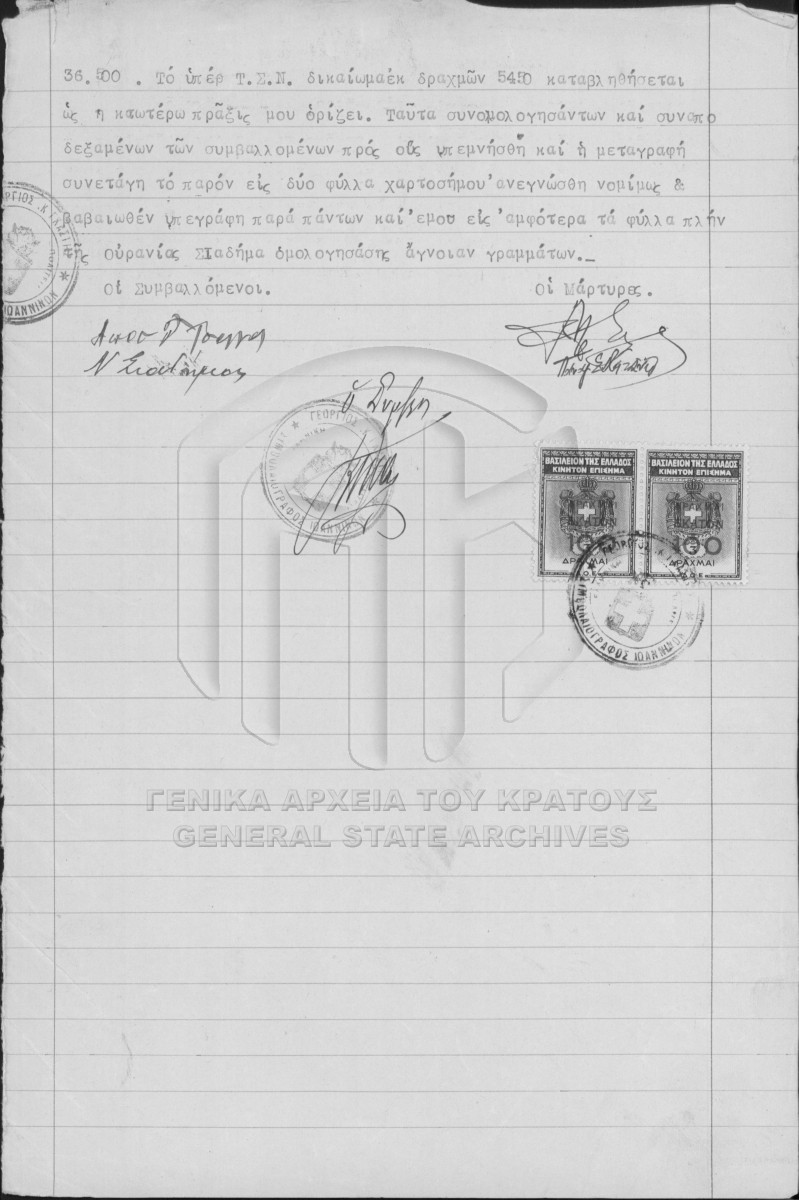 36.500 . Τό ὑπέρ Τ.Σ.Ν. δικαίωμαέκ δραχμῶν 5450 καταβληθήσεται
ὡς η κατωτέρω πρᾶξις μου ὁρίζει. Ταῦτα συνομολογησάντων καί συναπο
δεξαμένων τῶν συμβαλλομένων πρός οὕς ὑπεμνήσθη καί ἡ μεταγραφή
συνετάγη τό παρόν εἰς δύο φύλλα χαρτοσήμου'ανεγνώσθη νομίμως &
βαβαιωθέν ὑπεγράφη παρά πάντων καί'εμοῦ εἰς'αμφότερα τά φύλλα πλήν
τῆς Οὐρανίας Σιαδήμα ὁμολογησάσης ἄγνοιαν γραμμάτων._
Οἱ Συμβαλλόμενοι.
Οἱ Μάρτυρες.
Ν Σιαδήμας
ΒΑΣΙΛΕΙΟΝ ΤΗΣ ΕΛΛΑΔΟΣ
ΚΙΝΗΤΟΝ ΕΠΙΣΗΜΑ
100
ΔΡΑΧΜΑΙ
ΒΑΣΙΛΕΙΟΝ ΤΗΣ ΕΛΛΑΔΟΣ
ΚΙΝΗΤΟΝ ΕΠΙΣΗΜΑ
100
ΔΡΑΧΜΑΙ
ΓΕΩΡΓΙΟΣ Κ
ΣΥΜΒΟΛΑΙΟΓΡΑΦΟΣ ΙΩΑΝΝΙΝΩΝ
ΓΕΝΙΚΑ ΑΡΧΕΙΑ ΤΟΥ ΚΡΑΤΟΥΣ
GENERAL STATE ARCHIVES